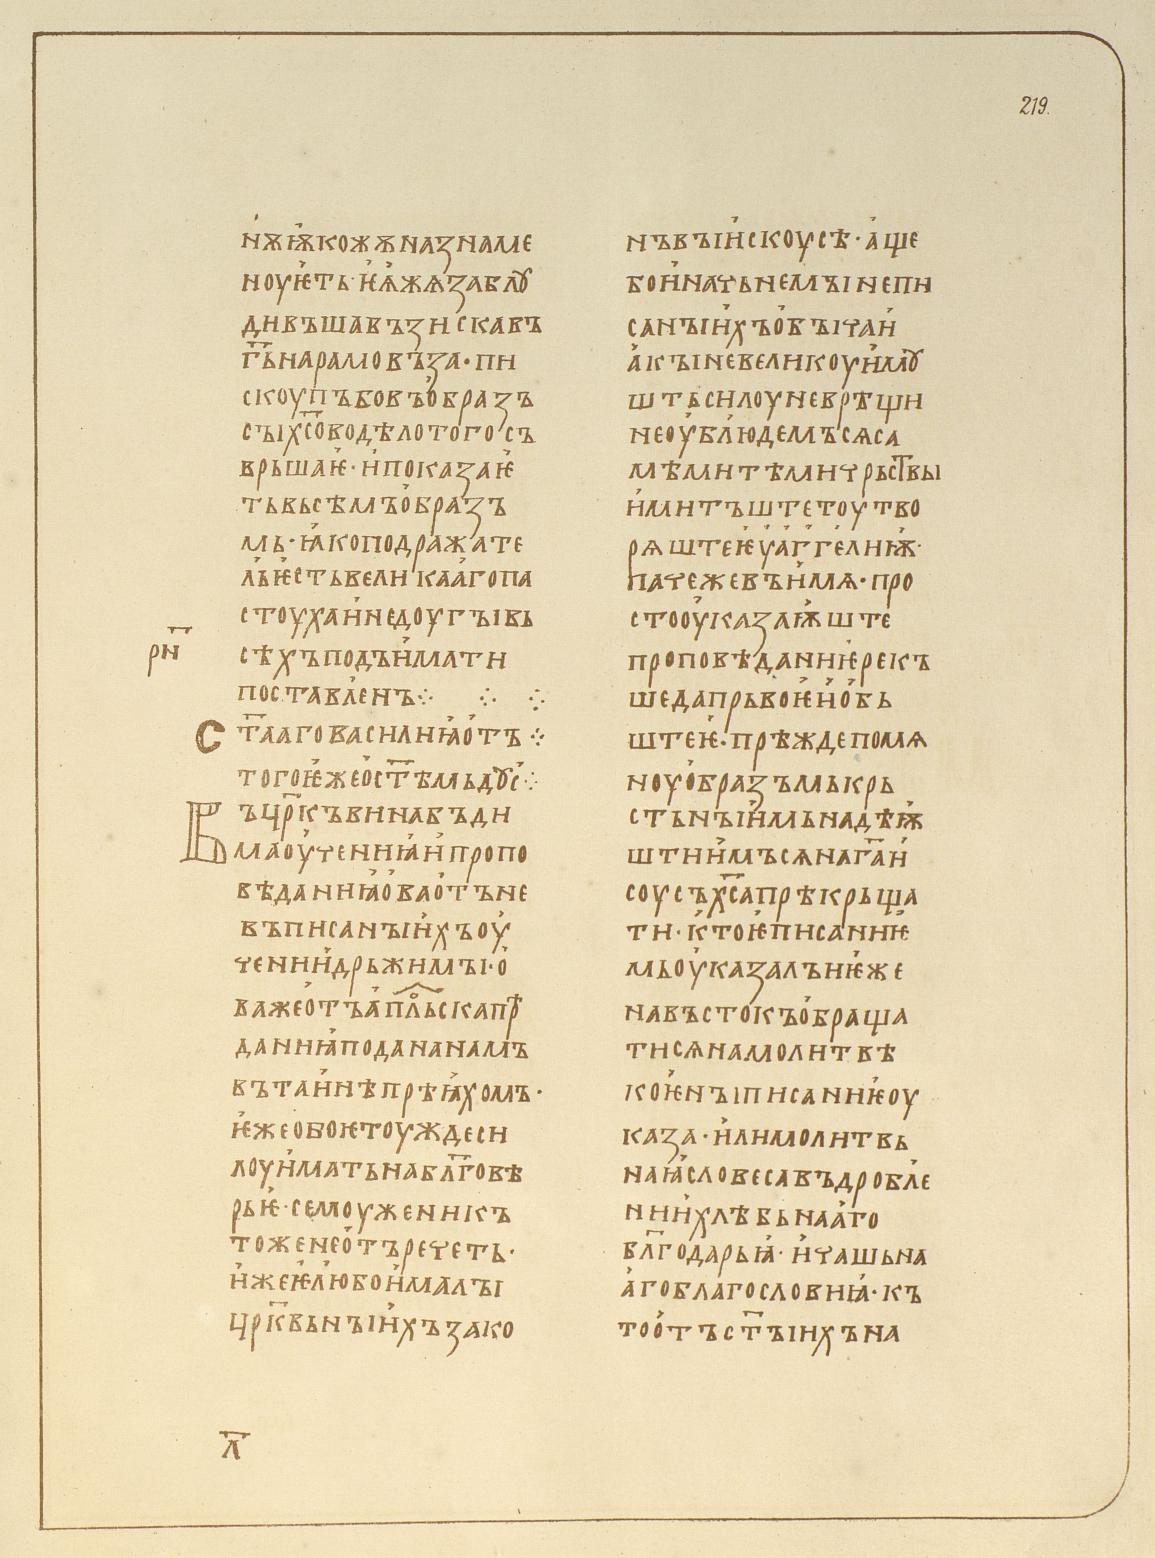 219.
нѫѭкожѫназнаме
ноуѥть·ѥѩжѧзаблꙋ
дивъшавъзискавъ
г҃ьнарамовъза·пи
скоупъбовъобразъ
сыих҃соводѣлотогосъ
врьшаѥ·ипоказаѥ
тьвьсѣмъобразъ
мь·ꙗкоподражате
льѥстьвеликаагопа
стоухаинедоугъівь
сѣхъподъимати
рн҃
поставленъ⁘ ⁘ ⁘
ст҃аагоВасилиꙗотъ⁘
тогоѥжеост҃ѣмьдꙋс⁘
Въцр҃къвинабъди
маоучениꙗипропо
вѣданиꙗоваотъне
въписанъіихъоу
ченииидрьжимъі·о
важеотъап҃льскапр
даниꙗподананамъ
вътаинѣпрѣꙗхомъ·
ѥжеобоѥтоуждеси
лоуиматьнабл҃говѣ
рьѥ·семоуженикъ
тоженеотъречеть·
ижеѥлюбоималъі
цр҃квьнъіихъзако
нъвъіискоусѣ·аще
боиначьнемъінепи
санъіихъобъічаи
акъіневеликоуимꙋ
штьсилоуневрѣщи
неоублюдемъсѧса
мѣмитѣмичрьст҃вы
имитъштетоутво
рѧштеѥуаггелиѭ·
пачежевъимѧ·про
стооуказаѭште
проповѣданиѥрекъ
шедапрьвоѥиобь
штеѥ·прѣждепомѧ
ноуобразъмькрь
стьнъіимьнадѣѭ
штиимъсѧнаг҃аи
соусъх҃сапрѣкрьща
ти·ктоѥписаниѥ
мьоуказалъиѥже
навъстокъобраща
тисѧнамолитвѣ
коѥнъіписаниѥоу
каза·илимолитвь
наꙗсловесавъдробле
ниихлѣбьнааго
бл҃годарьꙗ·ичашьна
агоблагословиꙗ·къ
тоотъст҃ъіихъна
л҃